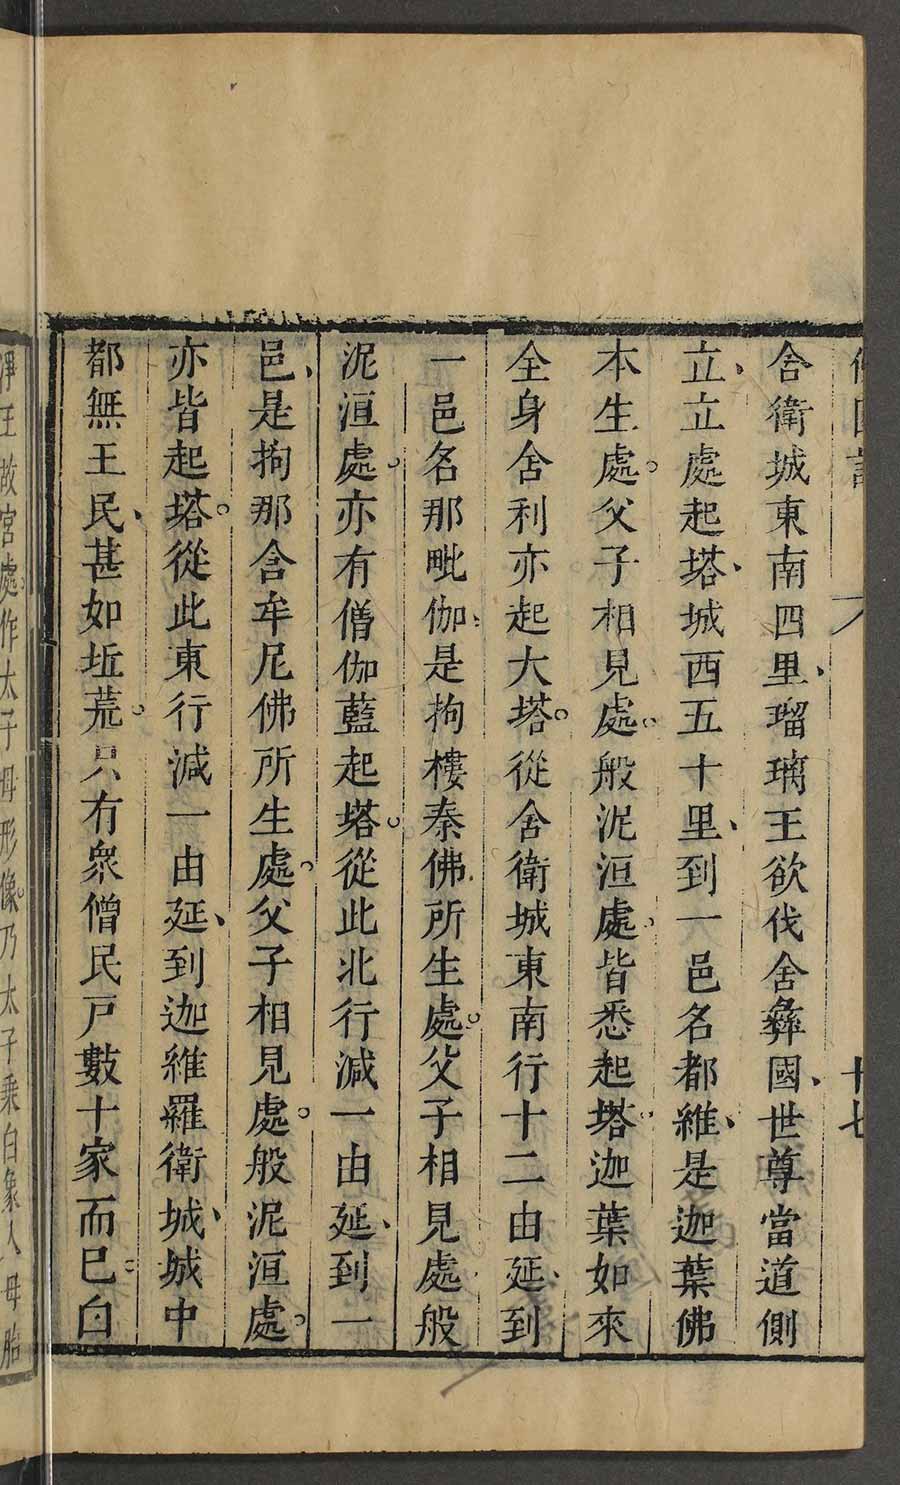 佛國記
十七
舍衛城東南四里、瑠璃王欲伐舍彝國、世尊當道側
立、立處起塔、城西五十里、到一邑名都維、是迦葉佛
本生處。父子相見處。般泥洹處。皆悉起塔。迦葉如來
全身舍利亦起大塔。從舍衛城東南行十二由延、到
一邑名那毗伽、是拘樓秦佛所生處。父子相見處般
泥洹處。亦有僧伽藍起塔。從此北行減一由延、到一
邑、是拘那含牟尼佛所生處。父子相見處。般泥洹處。
亦皆起塔。從此東行減一由延、到迦維羅衛城、城中
都無王民、甚如坵荒。只有衆僧民戸數十家而已。白
淨王故宮處。作太子母形像。乃太子乘白象入母胎